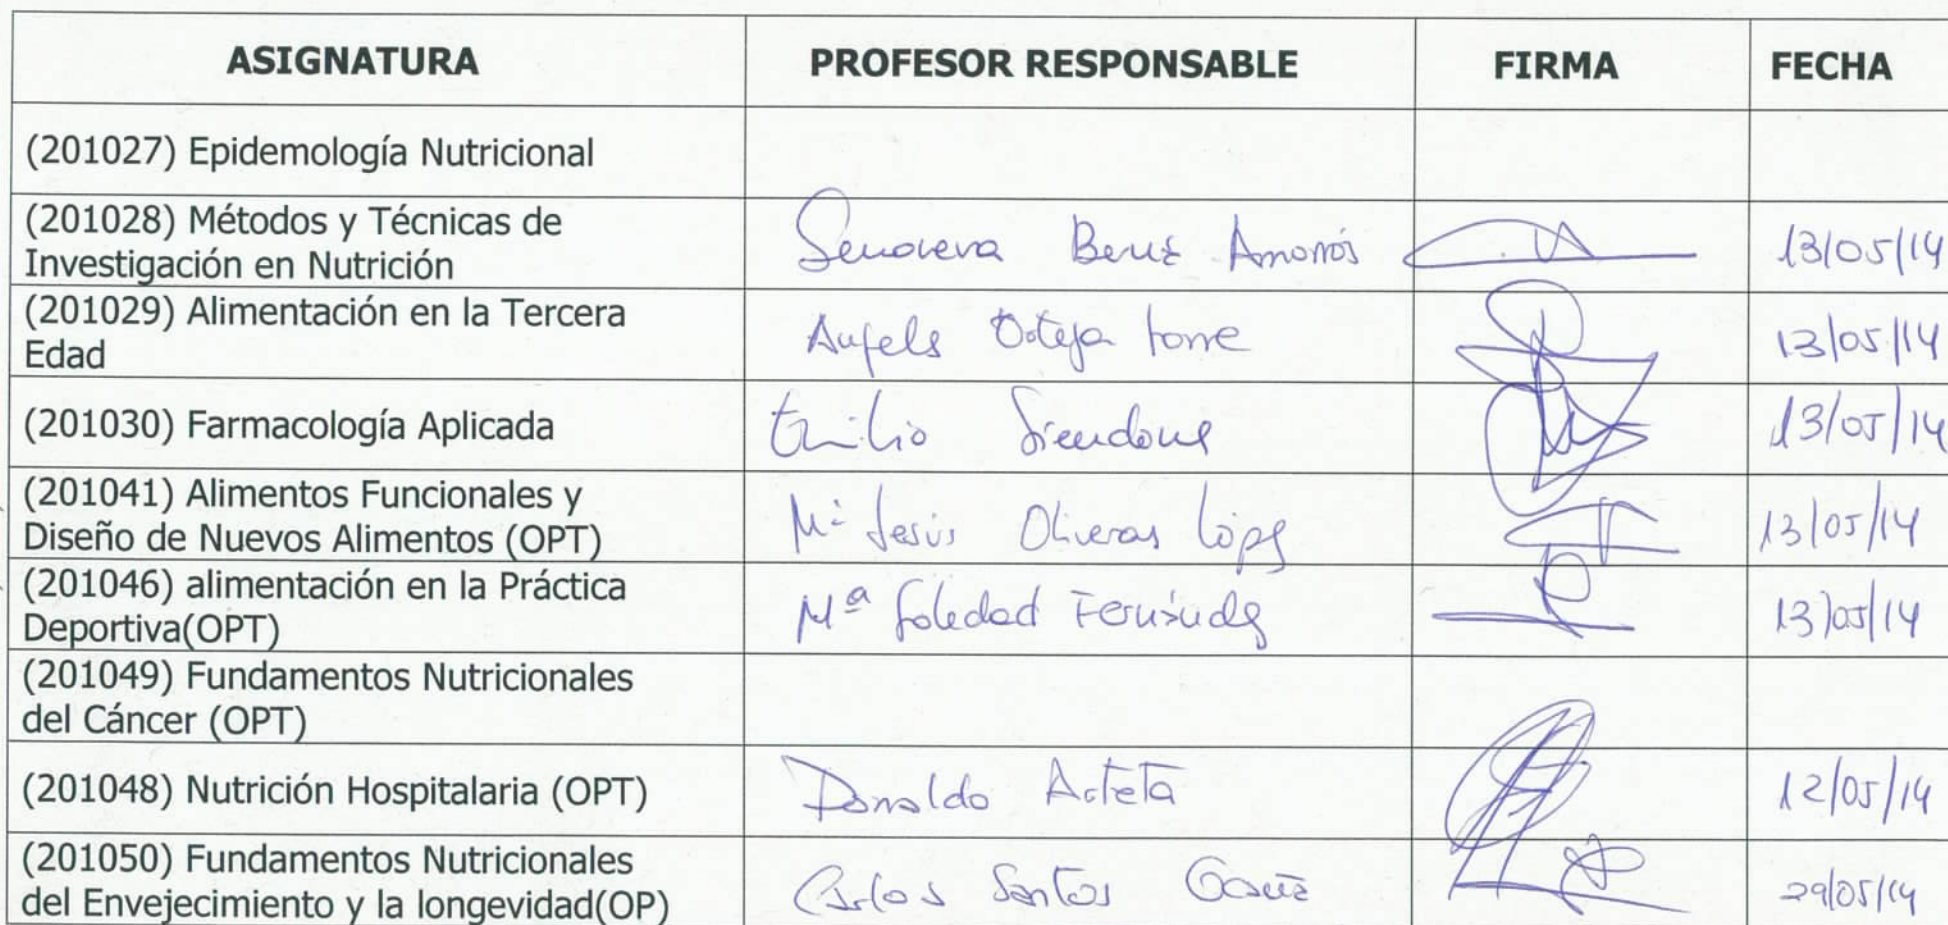 ASIGNATURA PROFESOR RESPONSABLE FIRMA FECHA
(201027) Epidemología Nutricional
(201028) Métodos y Técnicas de
Investigación en Nutrición
Genoveva Berná Amorós 13/05/14
(201029) Alimentación en la Tercera
Edad
Angels Ortega torre 13/05/14
(201030) Farmacología Aplicada Emilio Siendones 13/05/14
(201041) Alimentos Funcionales y
Diseño de Nuevos Alimentos (OPT)
Mª Jesús Oliveras López 13/05/14
(201046) alimentación en la Práctica
Deportiva(OPT)
Mª Soledad Fernández 13/05/14
(201049) Fundamentos Nutricionales
del Cáncer (OPT)
(201048) Nutrición Hospitalaria (OPT) Donaldo Arteta 12/05/14
(201050) Fundamentos Nutricionales
del Envejecimiento y la longevidad(OP)
Carlos Santos 29/05/14